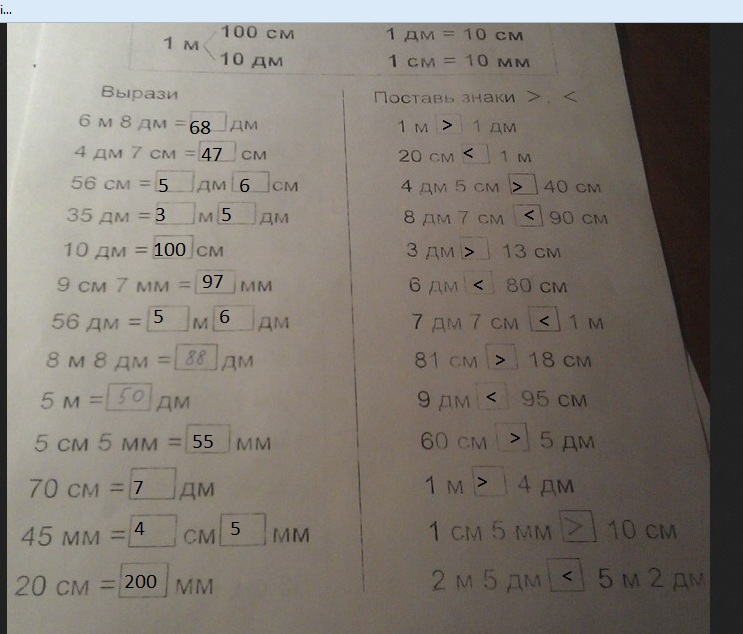 i...
1 м 100 см
10 дм
1 дм = 10 см
1 см = 10 мм
Вырази
6 м 8 дм = 68 дм
4 дм 7 см = 47 см
56 см = 5 дм 6 см
35 дм = 3 м 5 дм
10 дм = 100 см
9 см 7 мм = 97 мм
56 дм = 5 м 6 дм
8 м 8 дм = 88 дм
5 м = 50 дм
5 см 5 мм = 55 мм
70 см = 7 дм
45 мм = 4 см 5 мм
20 см = 200 мм
Поставь знаки >, <
1 м > 1 дм
20 см < 1 м
4 дм 5 см > 40 см
8 дм 7 см < 90 см
3 дм > 13 см
6 дм < 80 см
7 дм 7 см < 1 м
81 см > 18 см
9 дм < 95 см
60 см > 5 дм
1 м > 4 дм
1 см 5 мм > 10 см
2 м 5 дм < 5 м 2 дм